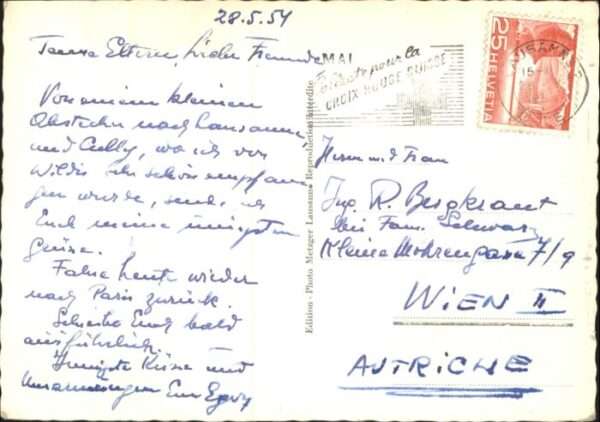 28.5.54
Teure Eltern, liebe Freunde
Von meinem kleinen
Abstecher nach Lausanne,
und Cully, wo ich von
Wildis sehr schön empfan
gen wurde, sende ich
Euch meine innigsten
Grüsse.
Fahre heute wieder
nach Paris zurück.
Schreibe Euch bald
ausführlich.
Innigste Küsse und
Umarmungen Euer
Edition - Photo Metzger Lausanne Reproduction interdite
MAI
pour la
CROIX ROUGE SUISSE
LAUSANNE
25 HELVETIA
Herrn und Frau
Ing. R. Bergkraut
bei Fam. Schwarz
Kleine Mohrengasse 7/9
WIEN II
AUTRICHE